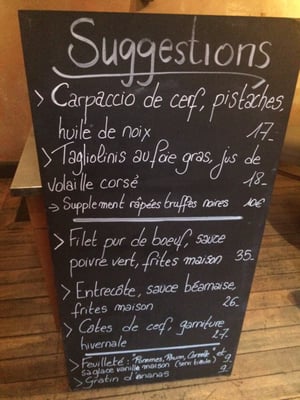 Suggestions
> Carpaccio de cerf, pistaches,
huile de noix 17.-
> Tagliolinis au foie gras, jus de
volaille corsé 18.-
→ Supplement râpées truffes noires 10€
> Filet pur de boeuf, sauce
poivre vert, frites maison 35.-
> Entrecôte, sauce béarnaise,
frites maison 26.-
> Côtes de cerf, garniture
hivernale 27.-
> Feuilleté: "Pommes, Rhum, Cannelle" et
sa glace vanille maison 9.-
> Gratin d'ananas 9.-